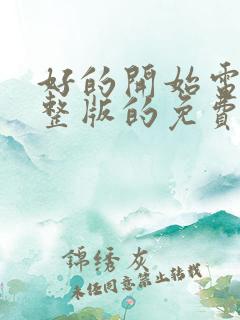 好的開始電
整版的免費
錦绣灰
未经同意禁止转载